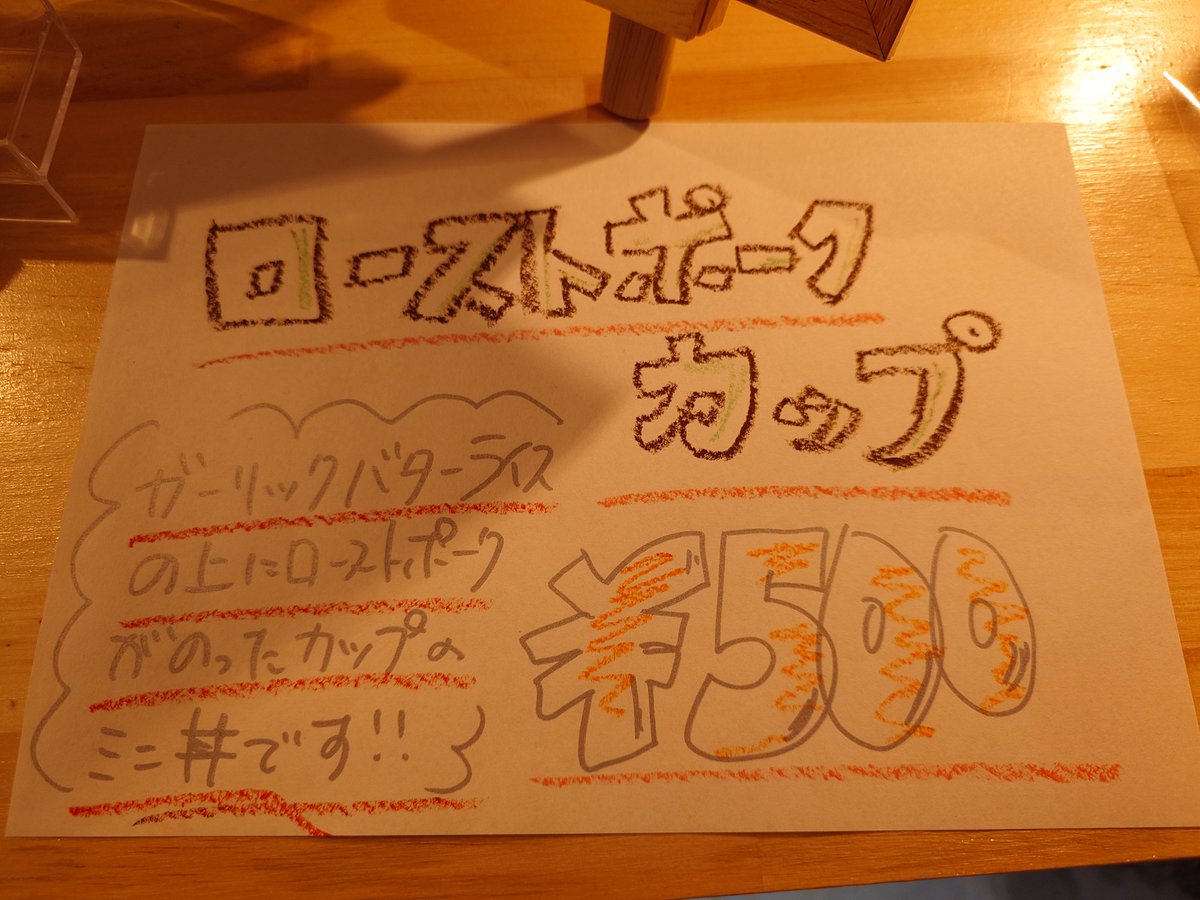 ローストポーク
カップ
ガーリックバターライス
の上にローストポーク
がのったカップの
ミニ丼です!!
¥500